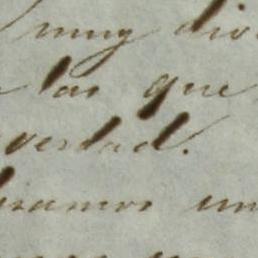 muy div
las que
verdad.
iramos un